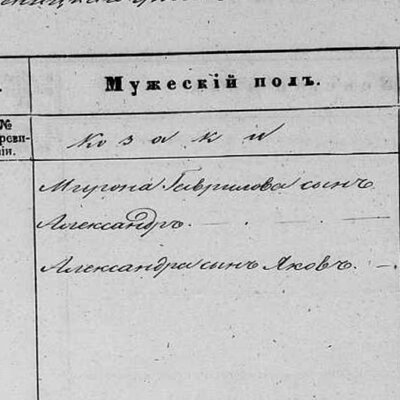 Мужескій полъ.
№
козаки
Мирона Гаврилова сынъ
Александръ. -
Александра сынъ Яковъ. -